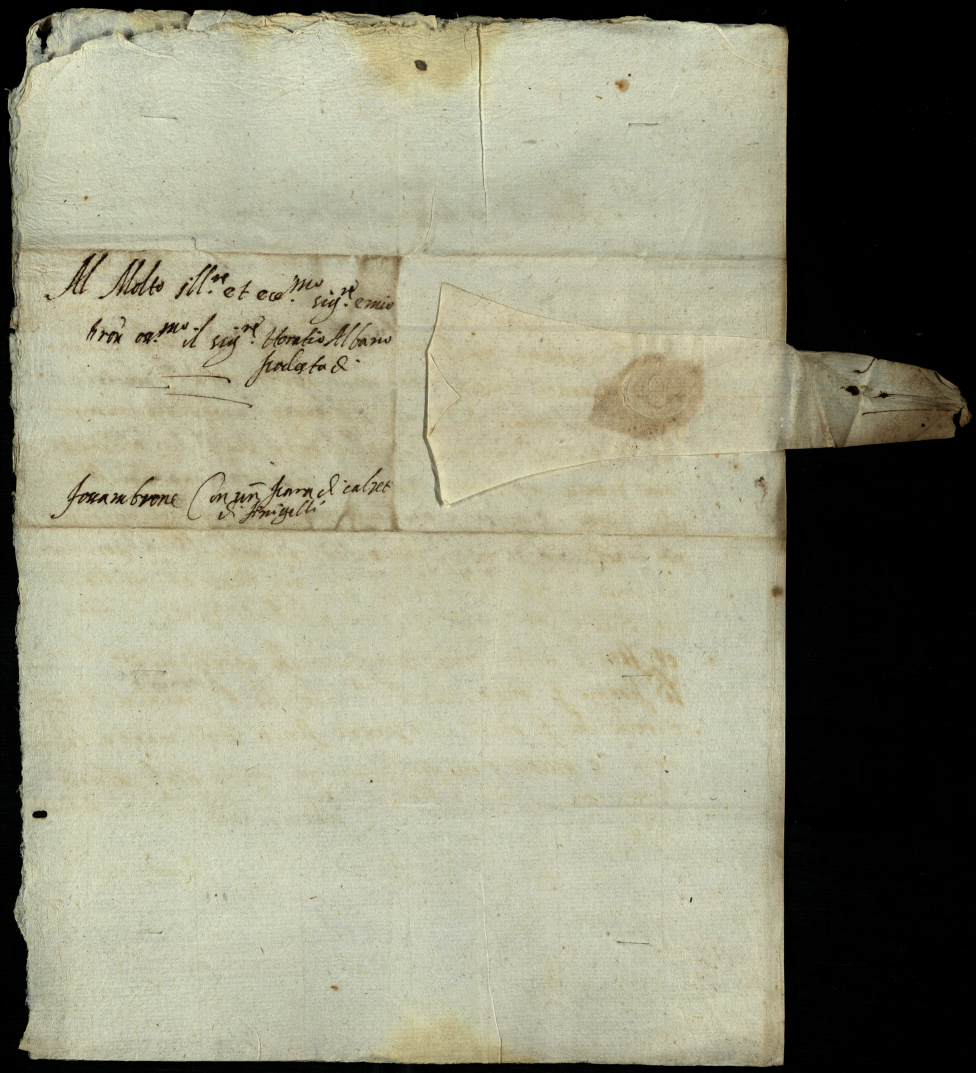 Al Molto ill.re et ecc.mo sig.re e mio
Pron oss.mo il sig.re Horatio Albano
Podesta di
Fossambrone Con un paro di calzet
di